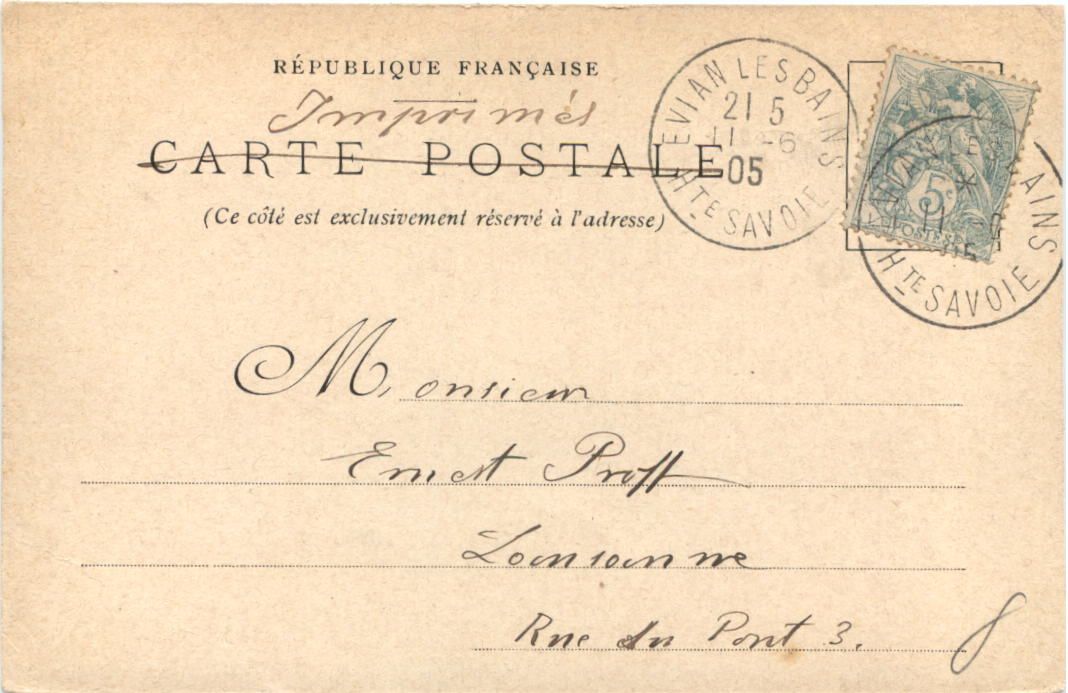 RÉPUBLIQUE FRANÇAISE
Imprimés
CARTE POSTALE
(Ce côté est exclusivement réservé à l'adresse)
EVIAN LES BAINS
21 5
11 -6
05
HTE SAVOIE
5c
POSTES
AINS
HTE SAVOIE
Monsieur
Ernest Proff
Lausanne
Rue du Pont 3.